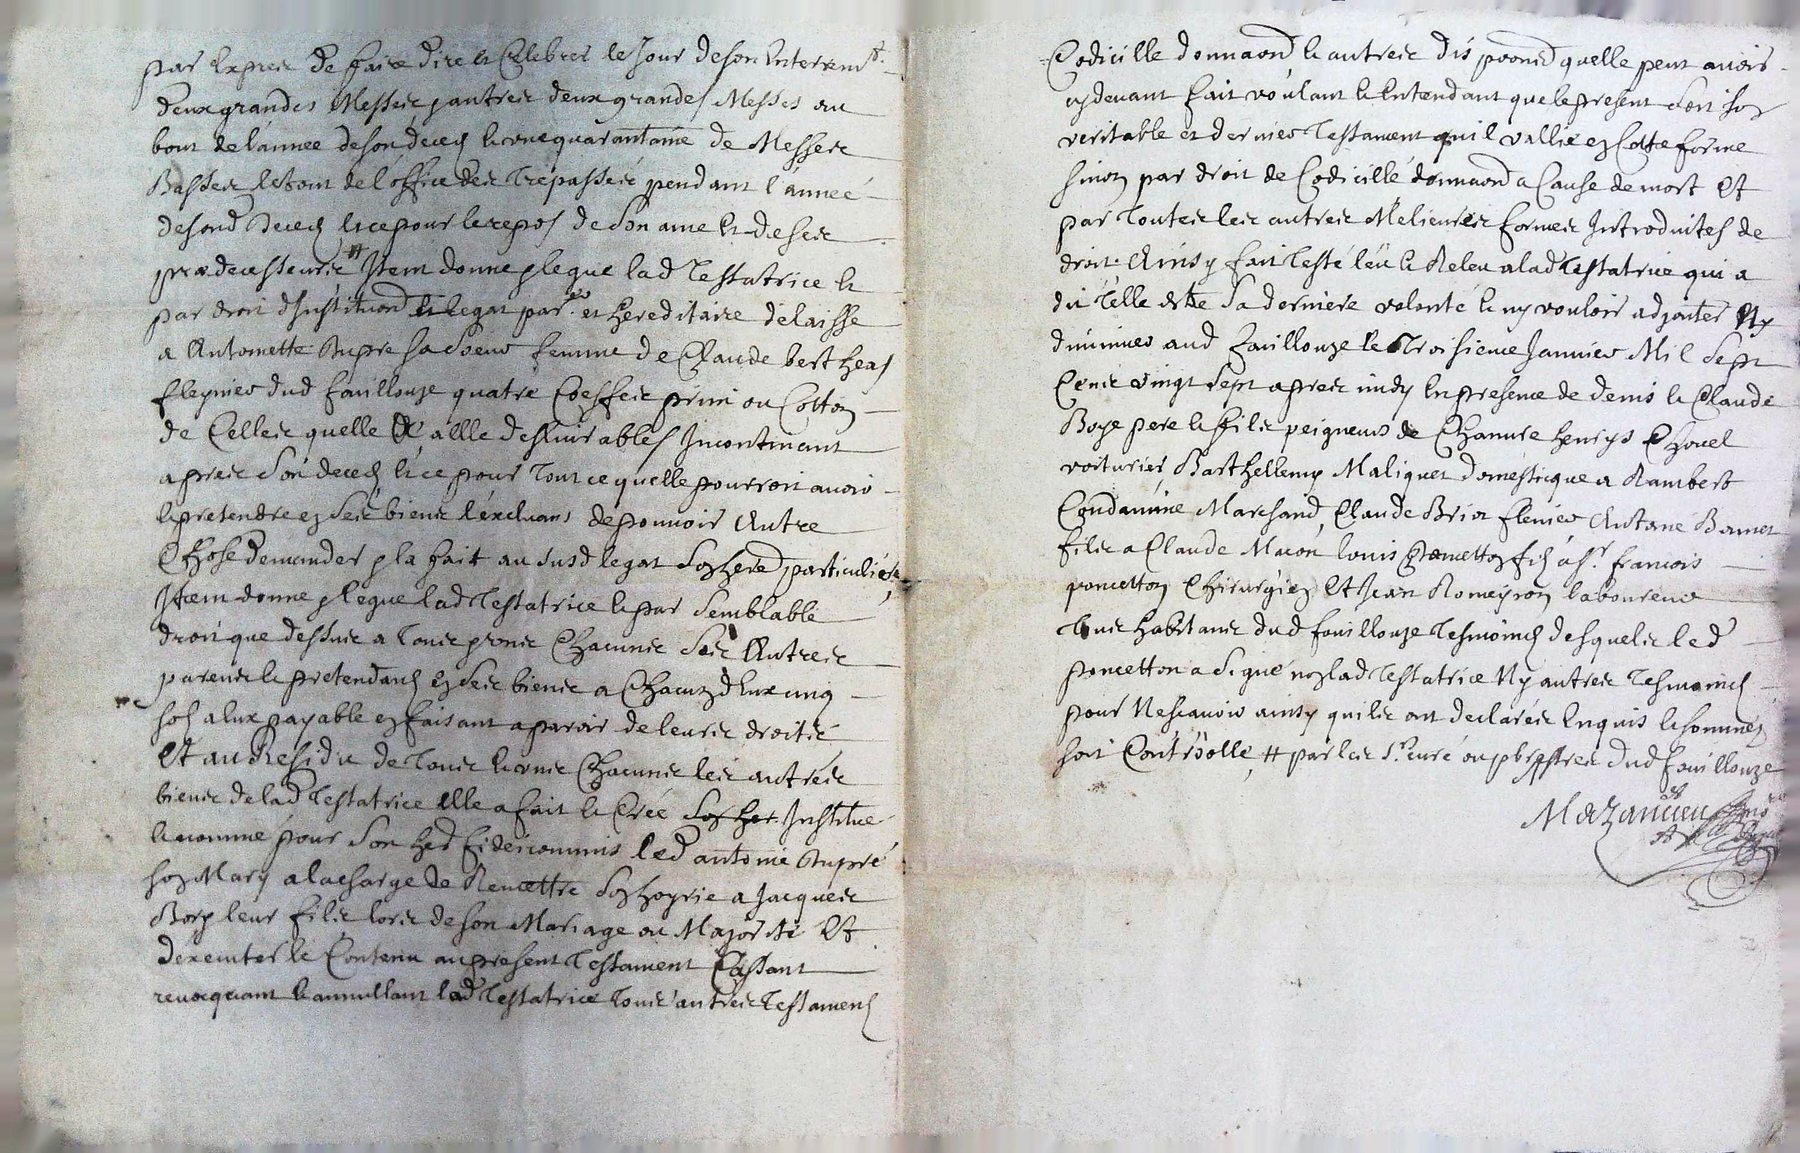 par Exprez de faire dire et Celebrer le Jour de son Enterremt.
deux grandes Messes autres deux grandes Messes au
bout de l'année de son décez et une quarantaine de Messes
Basses et dont de l'office des Trépassés pendant l'année
desond Decez et ce pour le repos de son ame et de ses
predecesseurs # Item donne legue lad Testatrice et
par droit d'Institution et legat par.er et hereditaire delaisse
a Antoinette Dupre sa soeur femme de Claude bertheas
fleynier dud fouillouze quatre Coeffes prim ou Cotton
de Celles quelle a elle desluirables Incontinant
apres son decez et ce pour tout ce quelle pourroit avoir
et pretendre ez ses biens l'excluans de pouvoir Autre
Chose demander la fait au susd legat son hered particuliere
Item donne legue lad Testatrice et par semblable
droit que dessus a tous Chacuns ses Autres
parens et pretendans ez ses biens a Chacun deux cinq
sols a eux payable en faisant aparoir de leurs droits
Et au Residu de tous et uns Chacuns les autres
biens de lad Testatrice elle a fait et Crée son her. Institue
et nomme pour son hed fideicommis led antoine Dupré
son Mary a la charge de Remettre son hoyrie a Jacques
Bory leur fils lors de son Mariage ou Majorité Et
d'executer le Contenu au present Testament Cassant
revocquant et annullant lad Testatrice tous autres Testamens
Codicille donnaond et autres dispoond quelle peut avoir
cy devant fait voulant et Entendant que le present soit son
veritable et dernier Testament quil vallie en Cette forme
sinon par droit de Codicille donnaond a Cause de mort Et
par toutes les autres Melieures formes Introduites de
droit. Ainsy fait testé leu et Releu a lad Testatrice qui a
dit telle estre sa derniere volonté et ny vouloir adjouter Ny
diminuer aud fouillouze le troisieme Janvier Mil Sept
Cens vingt sept apres midy En presence de denis et Claude
Boye pere et fils peigneurs de Chanvre henrys Chovel
voiturier Barthellemy Maliquet domesticque a Rambert
Condamine Marchand, Claude Brion flenier Antoine Barnet
fils a Claude Macon louis poncetton fils a sr. francois
poncetton Chirurgien Et Jean Romeyron laboureur
tous habitans dud fouillouze tesmoins desquels led
poncetton a signé non lad Testatrice Ny autres tesmoins
pour Nescavoir ainsy quils ont declarés Enquis et sommés
soit Controolle, # par les sr. curé ou pbrestres dud fouillouze
Mazancieu